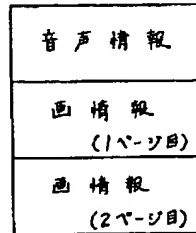 音声情報
画情報
(1ページ目)
画情報
(2ページ目)